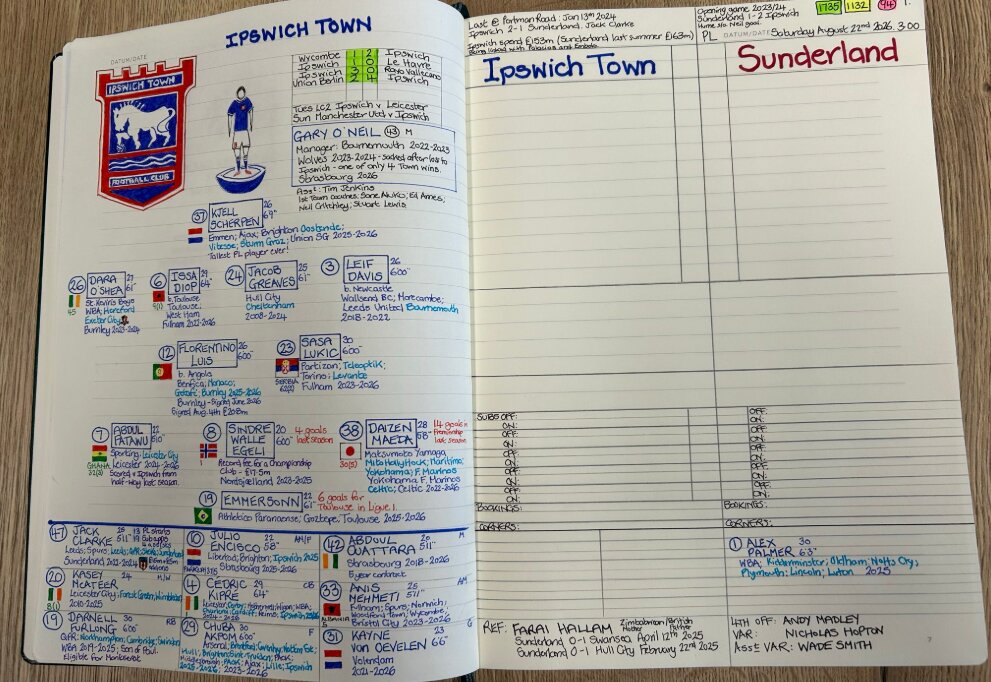 IPSWICH TOWN
DATUM/DATE
IPSWICH TOWN
FOOTBALL CLUB
Wycombe 1 2 Ipswich
Ipswich 1 0 Le Havre
Ipswich Rayo Vallecano
Union Berlin Ipswich
Tues LC2 Ipswich v Leicester
Sun Manchester Utd v Ipswich
GARY O'NEIL 43 M
Manager: Bournemouth 2022-2023
Wolves 2023-2024 - sacked after loss to
Ipswich - one of only 4 Town wins.
Strasbourg 2026
Asst: Tim Jenkins
1st Team coaches: Sone Aluko; Ed Ames;
Neil Critchley; Stuart Lewis
37 KJELL SCHERPEN 26 6'9"
Emmen; Ajax; Brighton Oostende;
Vitesse; Sturm Graz; Union SG 2025-2026
Tallest PL player ever!
26 DARA O'SHEA 27 6'1"
St. Kevin's Boys
WBA; Hereford
Exeter City
Burnley 2023-2024
6 ISSA DIOP 29 6'4"
b. Toulouse
Toulouse;
West Ham
Fulham 2022-2026
24 JACOB GREAVES 25 6'1"
Hull City
Cheltenham
2008-2024
3 LEIF DAVIS 26 6'00"
b. Newcastle
Wallsend BC; Morecambe;
Leeds United Bournemouth
2018-2022
12 FLORENTINO LUIS 26 6'00"
b. Angola
Benfica; Monaco;
Getafe; Burnley 2025-2026
Burnley - Signed June 2026
Signed Aug. 4th £20.8m
23 SASA LUKIC 30 6'00"
SERBIA
Partizan; Teleoptik;
Torino; Levante
Fulham 2023-2026
7 ABDUL FATAWU 22 5'10"
GHANA
Sporting; Leicester City
Leicester 2024-2026
Scored v Ipswich from
half-way last season.
8 SINDRE WALLE EGELI 20 6'00"
4 goals last season
Record fee for a Championship
Club - £17.5m
Nordsjælland 2023-2025
38 DAIZEN MAEDA 28 5'8"
14 goals in Premiership last season.
30(5)
Matsumoto Yamaga
Mito HollyHock; Maritimo;
Yokohama F. Marinos
Yokohama F. Marinos
Celtic; Celtic 2022-2026
19 EMMERSONN 22 6'1"
6 goals for Toulouse in Ligue 1.
Athletico Paranaense; Goztepe; Toulouse 2025-2026
47 JACK CLARKE 25 5'11"
Leeds; Spurs; Leeds; QPR; Stoke; Sunderland
Sunderland 2021-2024
10 JULIO ENCISO 22 5'8" AM/F
Libertad; Brighton; Ipswich 2025
Strasbourg 2025-2026
42 ABDOUL OUATTARA 20 5'11" M
Strasbourg 2018-2026
5 year contract
20 KASEY McATEER 24 M/W
8(1)
Leicester City; Forest Green; Wimbledon
2010-2025
4 CEDRIC KIPRE 29 6'4" CB
33 ANIS MEHMETI 25 5'11" AM
ALBANIA
Fulham; Spurs; Norwich;
Woodford Town; Wycombe;
Bristol City 2023-2026
19 DARNELL FURLONG 30 6'00" RB
QPR; Northampton; Cambridge; Swindon
WBA 2019-2025; Son of Paul.
Eligible for Montserrat
29 CHUBA AKPOM 30 6'00" F
31 KAYNE VAN OEVELEN 23 6'6" G
Volendam
2021-2026
Last @ Portman Road: Jan 13th 2024
Ipswich 2-1 Sunderland. Jack Clarke
Ipswich spend £153m (Sunderland last summer £163m)
Opening game 2023/24
Sunderland 1-2 Ipswich
1735 1132 94
PL DATUM/DATE Saturday August 22nd 2026. 3:00
Ipswich Town
Sunderland
SUBS OFF: OFF:
ON: ON:
OFF: OFF:
ON: ON:
OFF: OFF:
ON: ON:
OFF: OFF:
ON: ON:
OFF: OFF:
ON: ON:
BOOKINGS: BOOKINGS:
CORNERS: CORNERS:
1 ALEX PALMER 30 6'3"
WBA; Kidderminster; Oldham; Notts Cty;
Plymouth; Lincoln; Luton 2025
REF: FARAI HALLAM Zimbabwean Mother / British Father
Sunderland 0-1 Swansea April 12th 2025
Sunderland 0-1 Hull City February 22nd 2025
4TH OFF: ANDY MADLEY
VAR: NICHOLAS HOPTON
Asst VAR: WADE SMITH
7